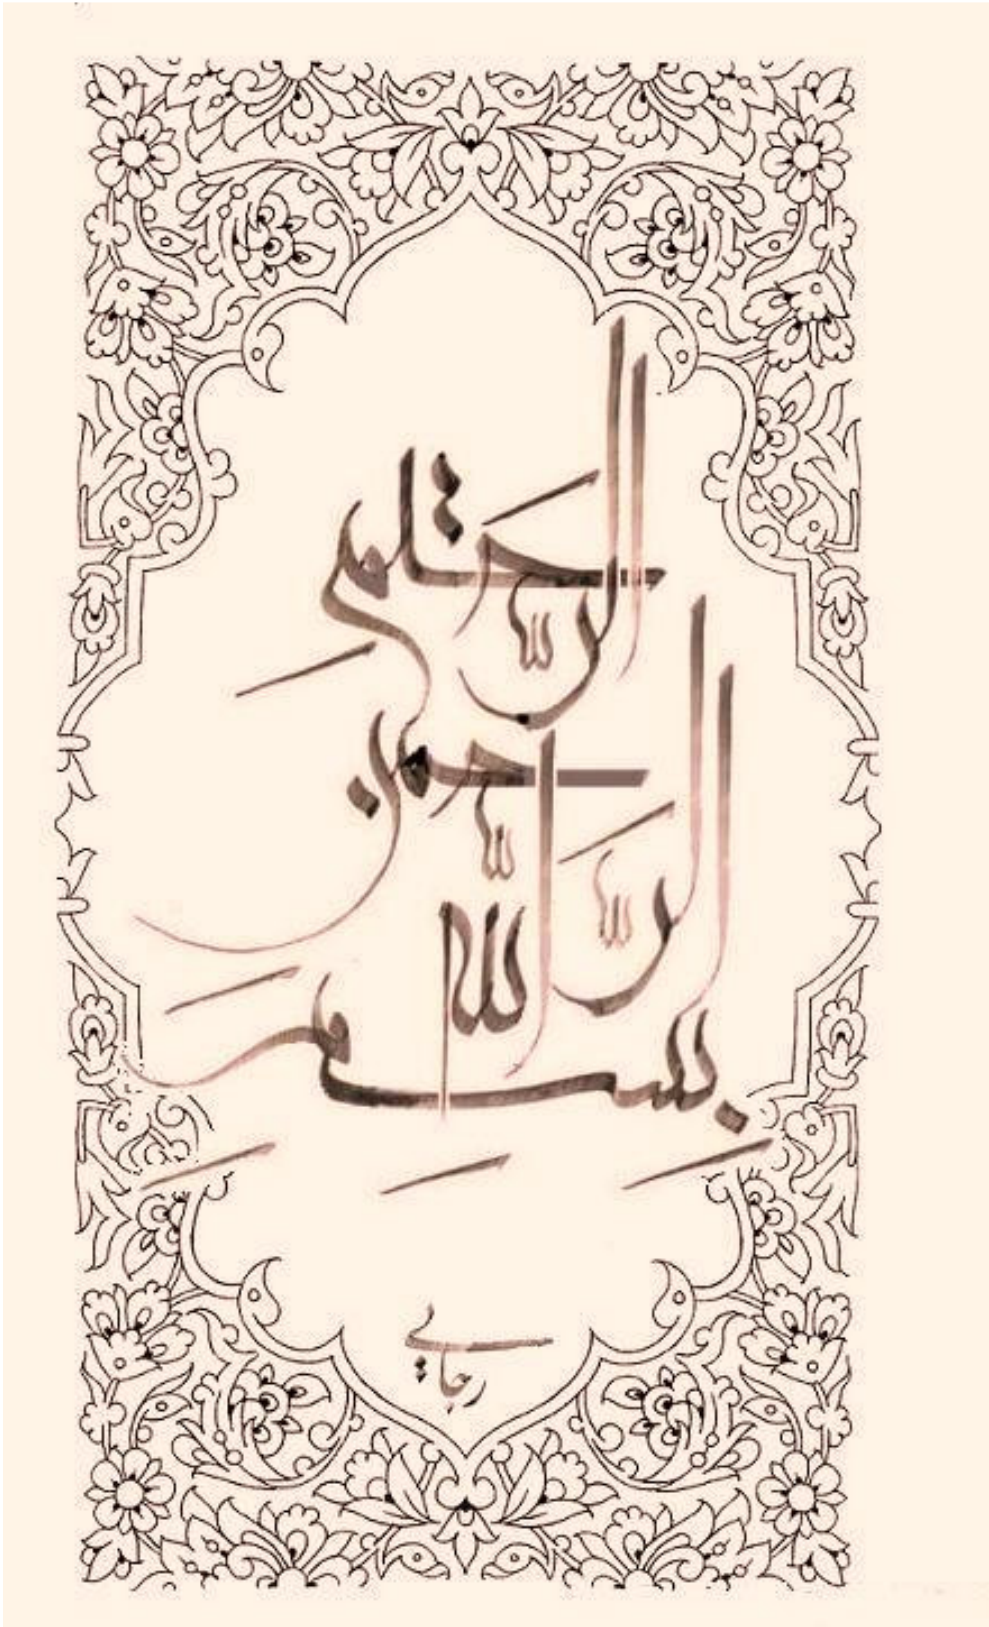 بسم الله
الرحمن
الرحیم
رجایی